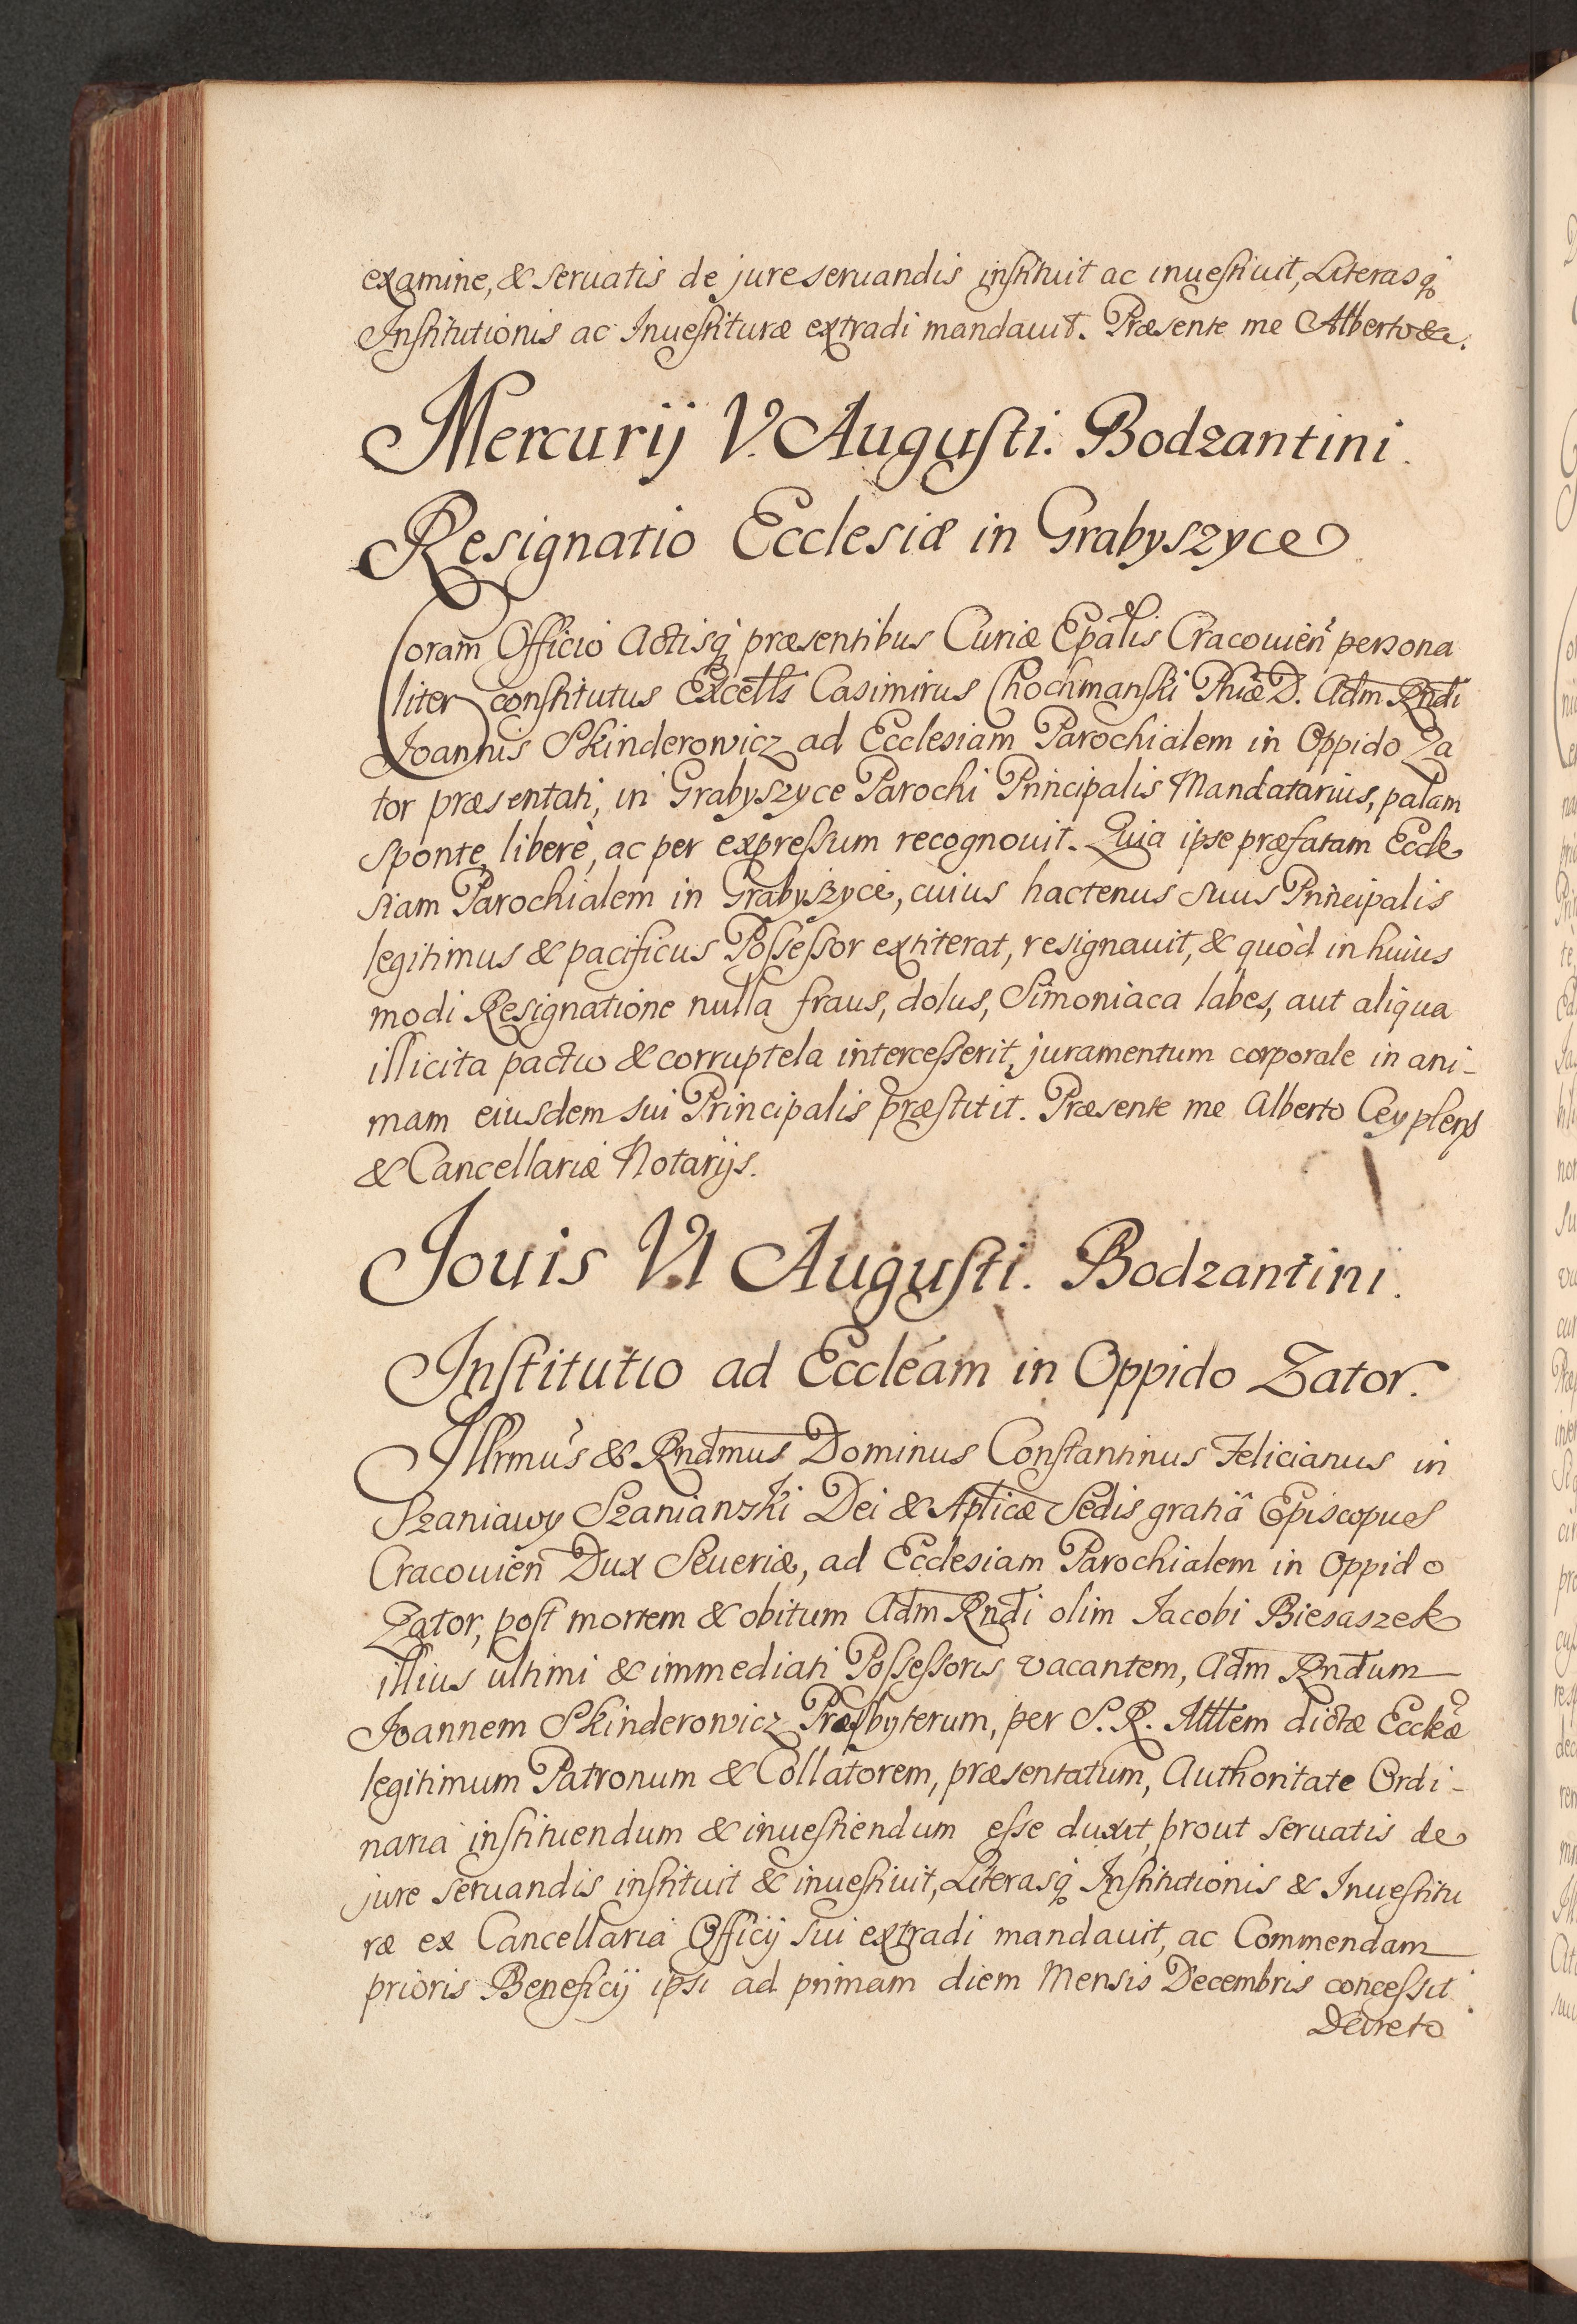 examine, & seruatis de jure seruandis instituit ac inuestiuit, Literasq́
Institutionis ac Inuestituræ extradi mandauit. Præsente me Alberto &c.
Mercurij V. Augusti. Bodzantini.
Resignatio Ecclesiæ in Grabyszyce
Coram Officio Actisq́ præsentibus Curiæ Epãlis Cracouien̄ persona
liter constitutus Excells Casimirus Chochmanski Phiæ D. Adm Rndi
Joannis Skinderowicz ad Ecclesiam Parochialem in Oppido Za
tor præsentati, in Grabyszyce Parochi Principalis Mandatarius, palam
sponte, liberè, ac per expressum recognouit. Quia ipse præfatam Eccle
siam Parochialem in Grabyszyce, cuius hactenus suus Principalis
legitimus & pacificus Possessor extiterat, resignauit, & quòd in huius
modi Resignatione nulla fraus, dolus, Simoniaca labes, aut aliqua
illicita pactio & corruptela intercesserit, juramentum corporale in ani-
mam eiusdem sui Principalis præstitit. Præsente me Alberto Ceyplers
& Cancellariæ Notarijs.
Jouis VI Augusti. Bodzantini.
Institutio ad Eccleám in Oppido Zator.
Illrmus & Rndmus Dominus Constantinus Felicianus in
Szaniawy Szaniawski Dei & Aplicæ Sedis gratiâ Episcopus
Cracouien̄ Dux Seueriæ, ad Ecclesiam Parochialem in Oppido
Zator, post mortem & obitum Adm Rndi olim Jacobi Biesaszek
illius ultimi & immediati Possessoris vacantem, Adm Rndum
Joannem Skinderowicz Præsbyterum, per S. R. Mttem dictæ Eccleæ
legitimum Patronum & Collatorem, præsentatum, Authoritate Ordi-
naria instituendum & inuestiendum esse duxit, prout seruatis de
jure seruandis instituit & inuestiuit, Literasq́ Institutionis & Inuestitu
ræ ex Cancellaria Officij sui extradi mandauit, ac Commendam
prioris Beneficij ipsi ad primam diem Mensis Decembris concessit.
Decreto